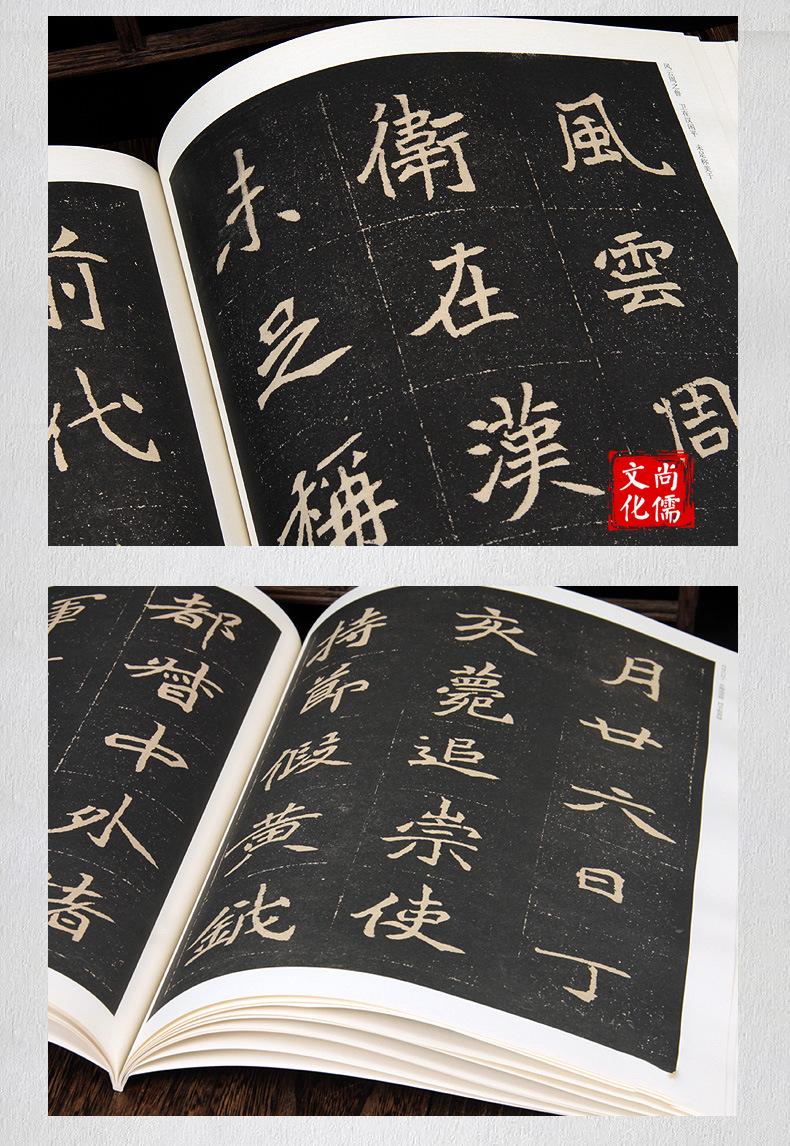 风云周之鲁　卫在汉闲平　未足称美于
風雲周
衛在漢
未足稱
前代
尚儒
文化
月廿六日丁
亥薨追崇使
持節假黄鉞
都督中外諸
軍